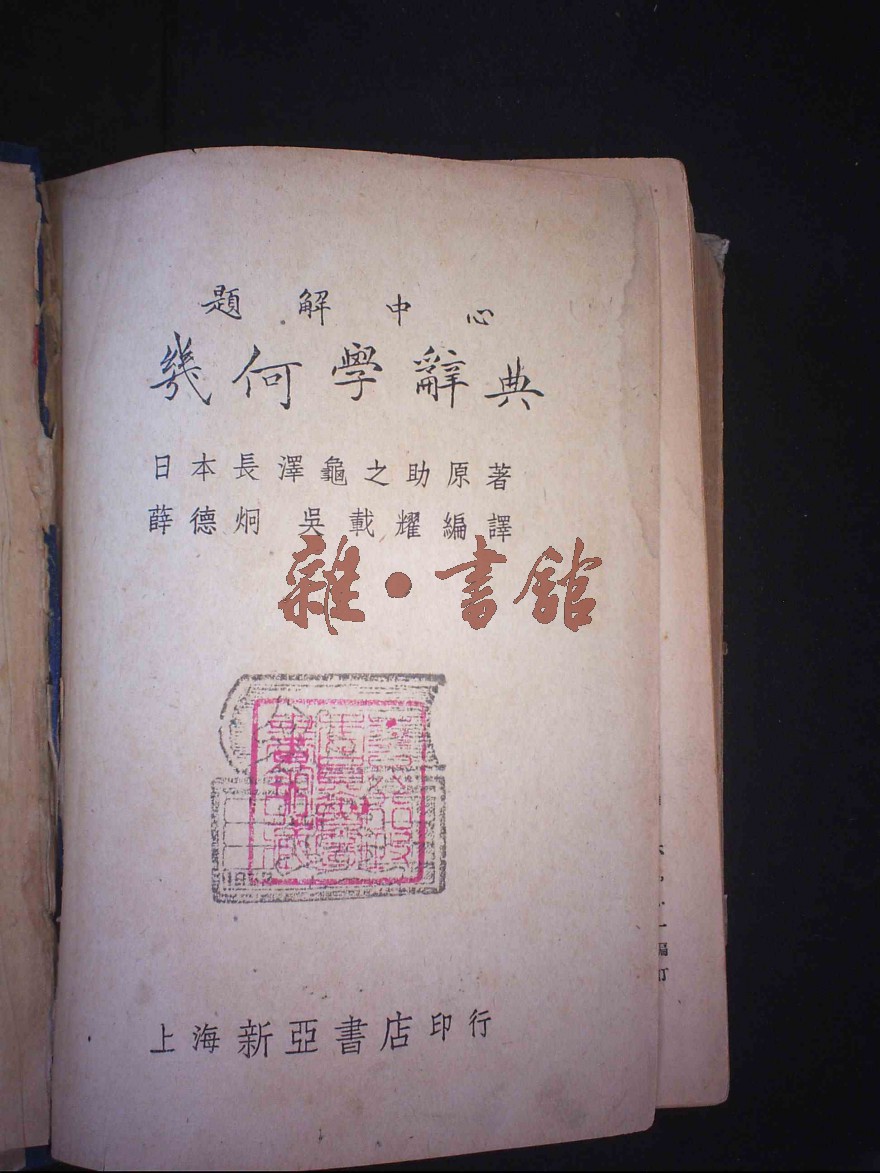 題解中心
幾何學辭典
日本長澤龜之助原著
薛德炯 吳載耀編譯
雜·書館
上海新亞書店印行
編訂